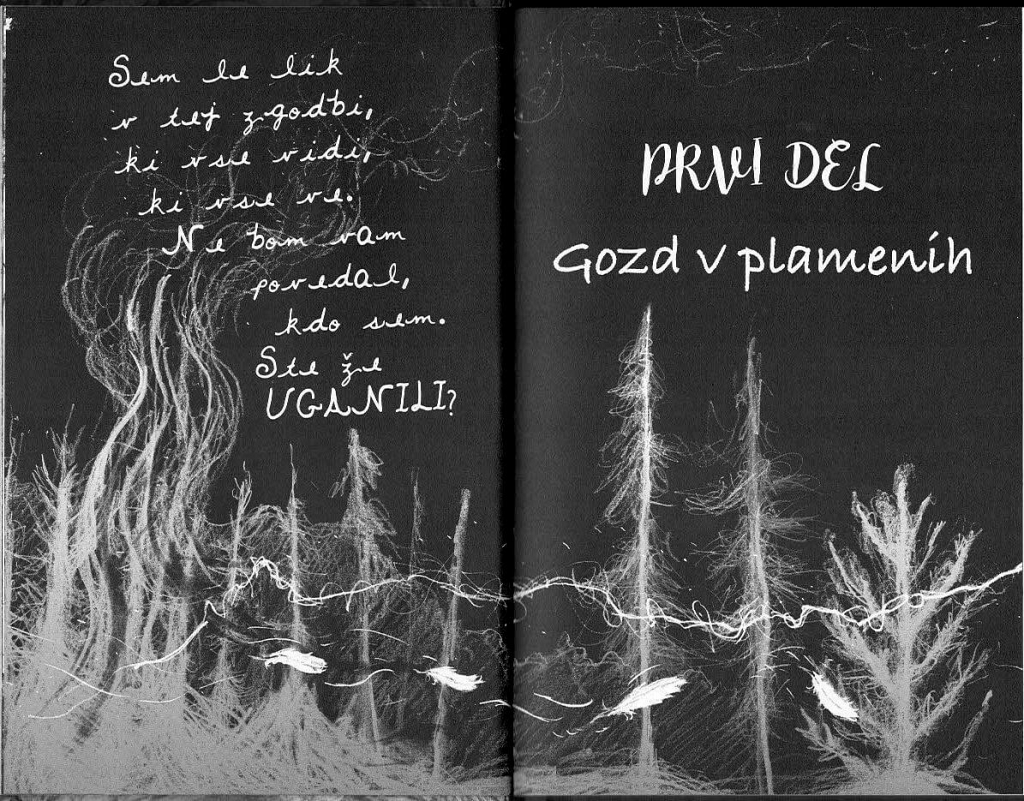 Sem le lik
v tej zgodbi,
ki vse vidi,
ki vse ve.
Ne bom vam
povedal,
kdo sem.
Ste že
UGANILI?
PRVI DEL
Gozd v plamenih